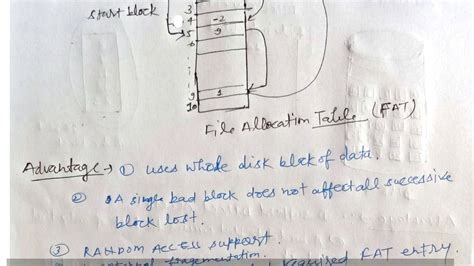 start block
3
4 -2
5 9
6
9 1
10
File Allocation Table (FAT)
Advantage → ① uses whole disk block of data.
② A single bad block does not affect all successive
block lost.
③ RANDOM ACCESS support.
internal fragmentation. FAT entry.